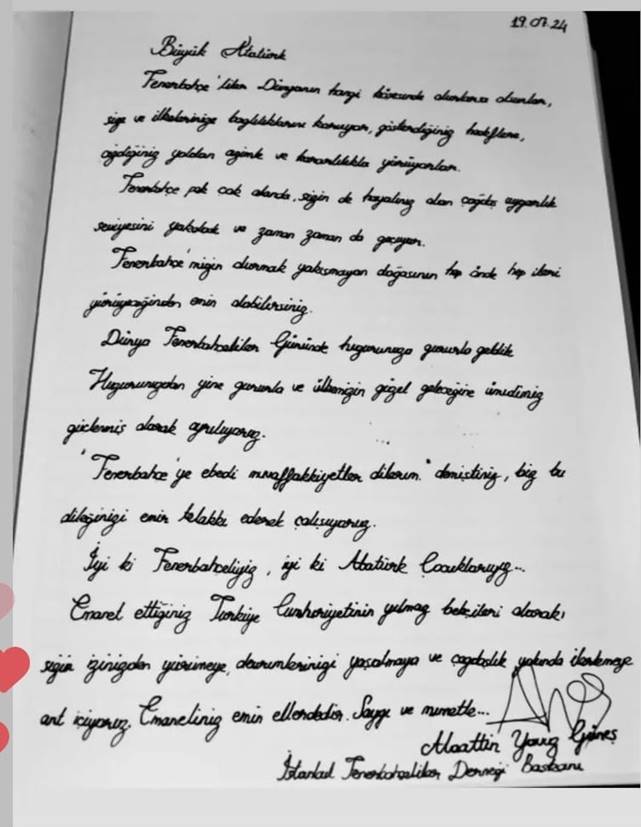 19.07.24
Büyük Atatürk
Fenerbahçe'liler Dünyanın hangi köşesinde olurlarsa olsunlar,
size ve ilkelerinize bağlılıklarını koruyor, gösterdiğiniz hedeflere,
açtığınız yoldan azimle ve kararlılıkla yürüyorlar.
Fenerbahçe pek çok alanda, sizin de hayaliniz olan çağdaş uygarlık
seviyesini yakaladı ve zaman zaman da geçiyor.
Fenerbahçe'mizin durmak yakışmayan doğasının hep önde hep ileri
yürüyeceğinden emin olabilirsiniz.
Dünya Fenerbahçeliler Gününde huzurunuza gururla geldik
Huzurunuzdan yine gururla ve ülkemizin güzel geleceğine ümidimiz
güçlenmiş olarak ayrılıyoruz.
"Fenerbahçe'ye ebedi muvaffakkiyetler dilerim." demiştiniz, biz bu
dileğinizi emir telakki ederek çalışıyoruz.
İyi ki Fenerbahçeliyiz, iyi ki Atatürk Çocuklarıyız...
Emanet ettiğiniz Türkiye Cumhuriyetinin yılmaz bekçileri olarak,
sizin izinizden yürümeye, devrimlerinizi yaşatmaya ve çağdaşlık yolunda ilerlemeye
ant içiyoruz. Emanetiniz emin ellerdedir. Saygı ve minnetle...
Alaattin Yavuz Güneş
İstanbul Fenerbahçeliler Derneği Başkanı